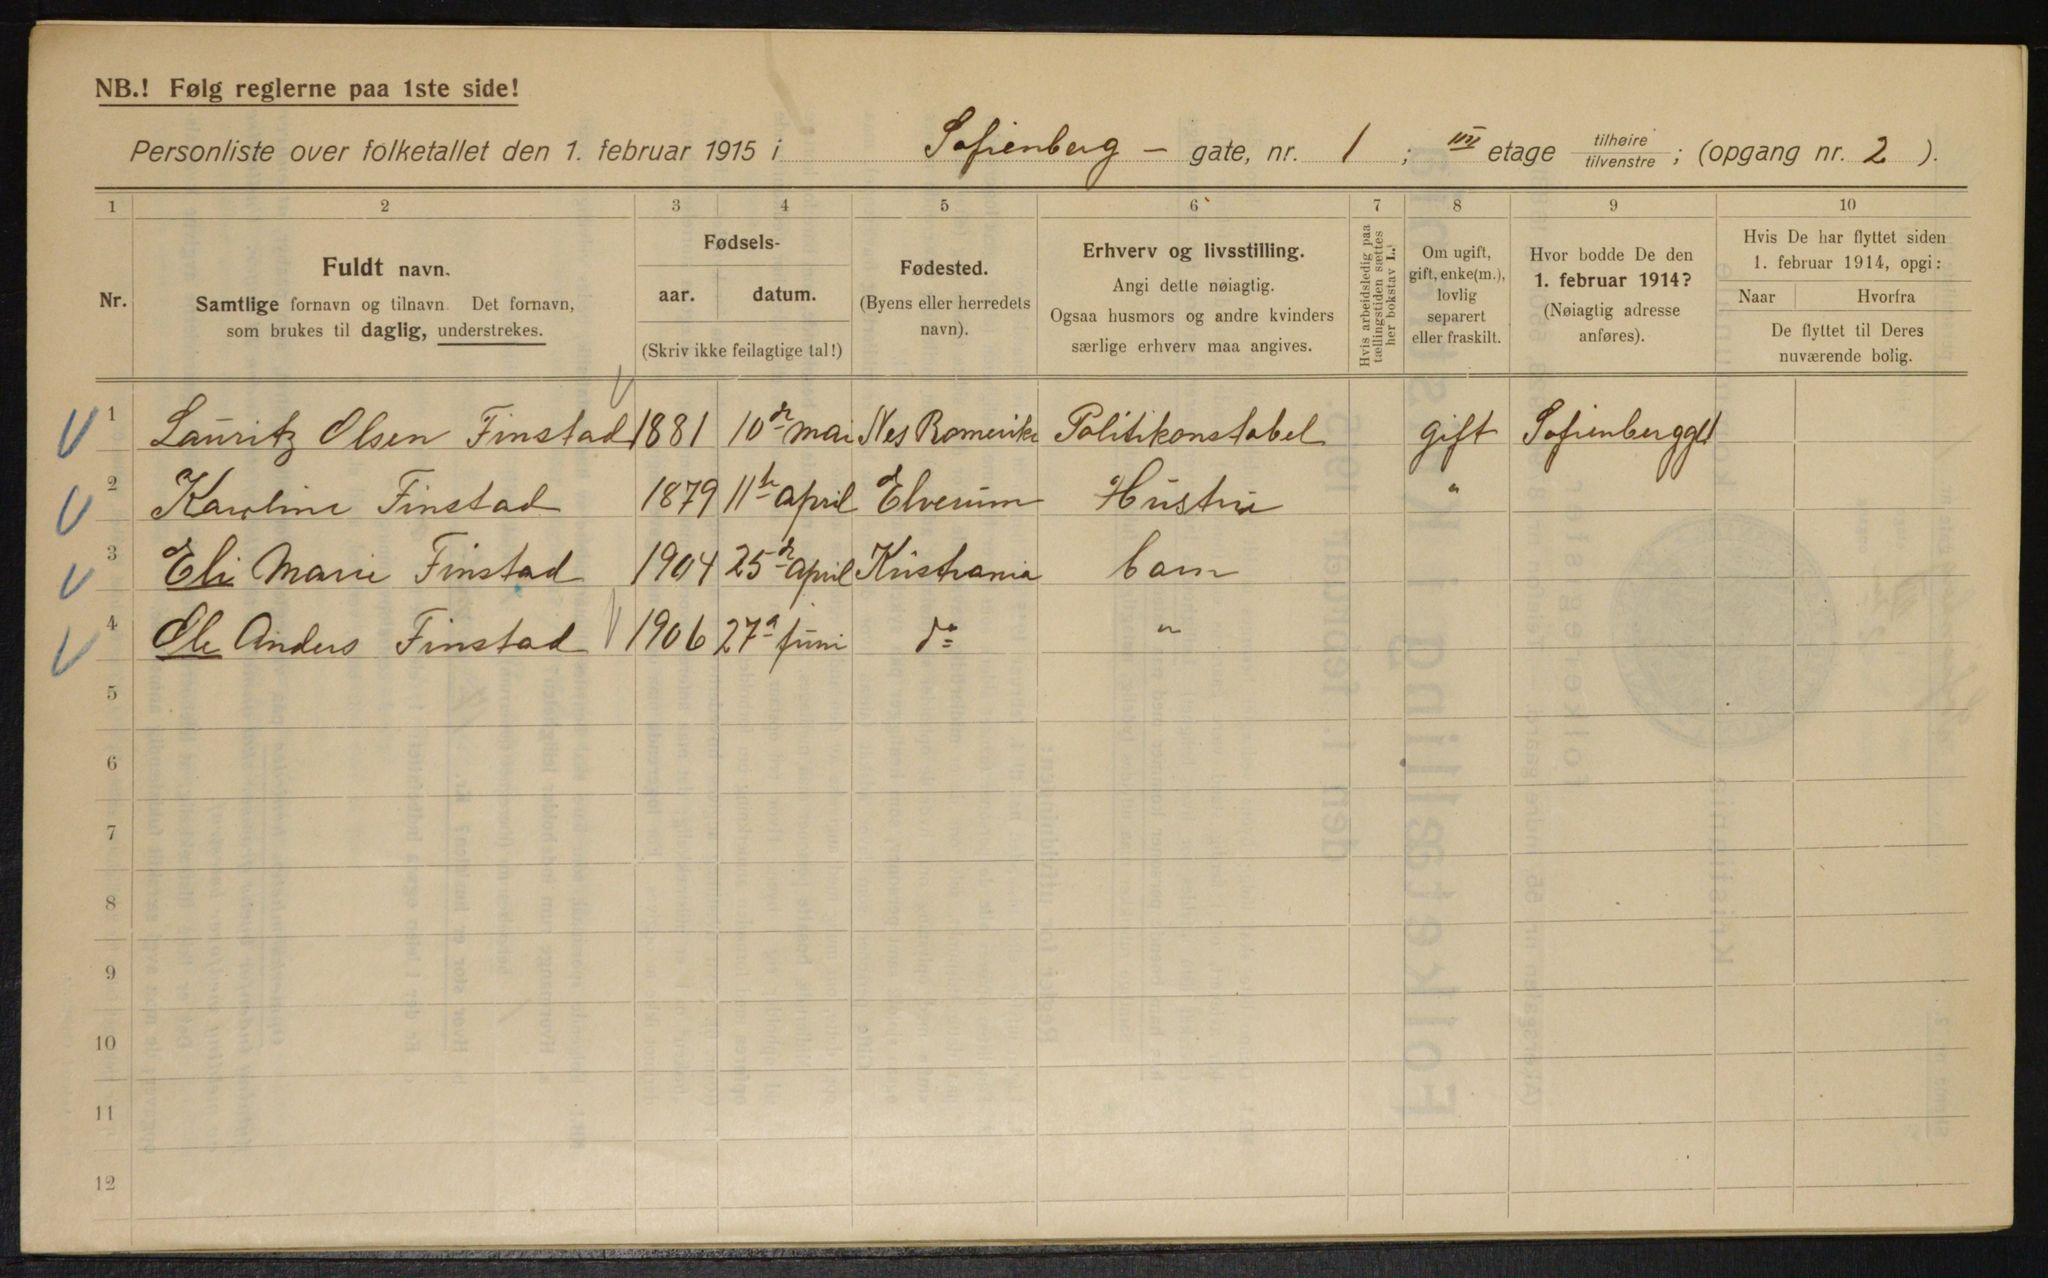 NB.! Følg reglerne paa 1ste side!
Personliste over folketallet den 1. februar 1915 i Sofienberg – gate, nr. 1 ; III etage tilhøire/tilvenstre ; (opgang nr. 2 ).
1 2 3 4 5 6 7 8 9 10
Nr.
Fuldt navn.
Samtlige fornavn og tilnavn. Det fornavn,
som brukes til daglig, understrekes.
Fødsels-
aar. datum.
(Skriv ikke feilagtige tal!)
Fødested.
(Byens eller herredets
navn).
Erhverv og livsstilling.
Angi dette nøiagtig.
Ogsaa husmors og andre kvinders
særlige erhverv maa angives.
Hvis arbeidsledig paa
tællingstiden sættes
her bokstav L.
Om ugift,
gift, enke(m.),
lovlig
separert
eller fraskilt.
Hvor bodde De den
1. februar 1914?
(Nøiagtig adresse
anføres).
Hvis De har flyttet siden
1. februar 1914, opgi:
Naar Hvorfra
De flyttet til Deres
nuværende bolig.
1 Lauritz Olsen Finstad 1881 10de mai Nes Romerike Politikonstabel gift Sofienberggt 1
2 Karoline Finstad 1879 11te april Elverum Hustru "
3 Eli Marie Finstad 1904 25de april Kristiania barn
4 Ole Anders Finstad 1906 27de juni do "
5
6
7
8
9
10
11
12